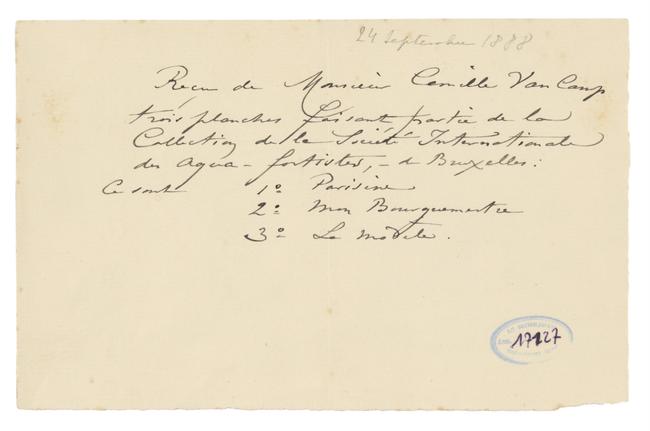 24 Septembre 1888
Reçu de Monsieur Camille Van Camp
trois planches faisant partie de la
Collection de la Société Internationale
des Aqua-fortistes, - de Bruxelles:
Ce sont 1º Parisine
2º Mon Bourguemestre
3º Le modèle.
17127